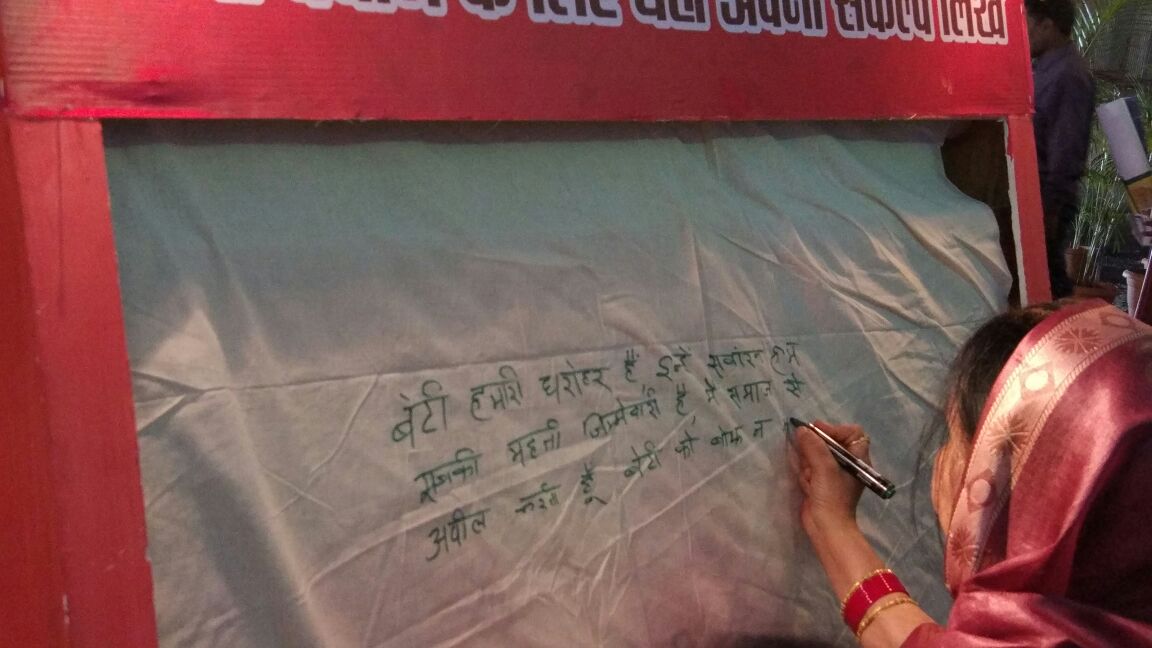 के लिए यहाँ अपना संकल्प लिखें
बेटी हमारी धरोहर हैं, इन्हें सवांरन हम
महती जिम्मेवारी हैं, मैं समाज से
अपील करती हूँ बेटी को बोझ न